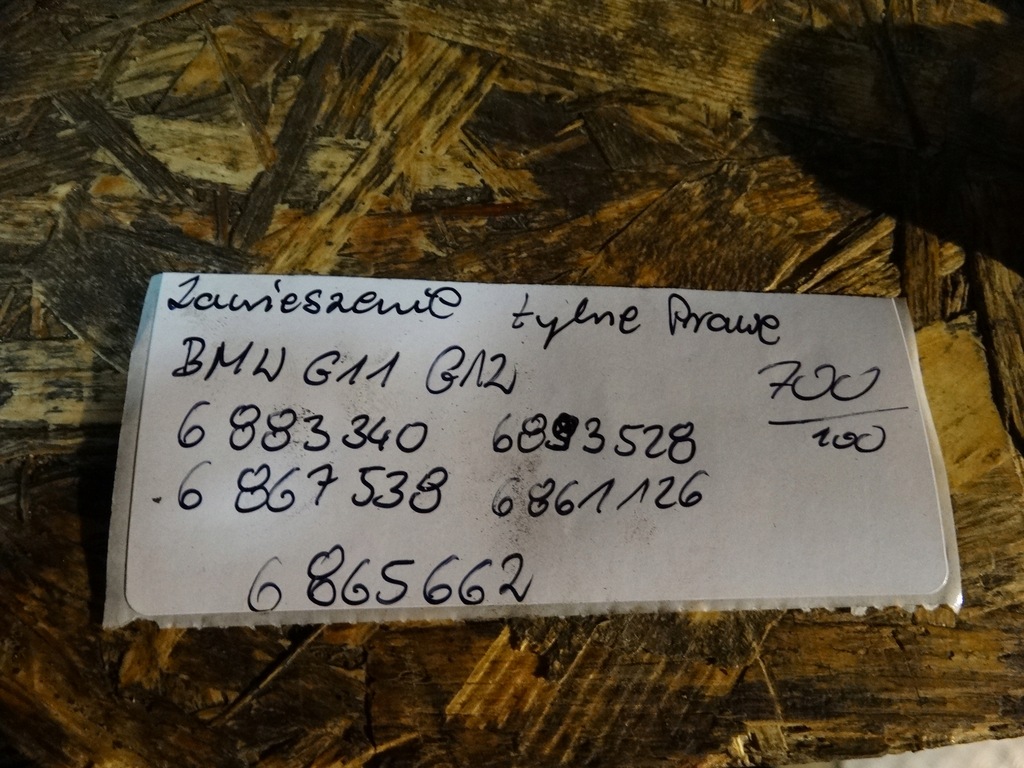 Zawieszenie tylne Prawe
BMW G11 G12
700
100
6 883 340 6893528
6 867 538 6861126
6 865662